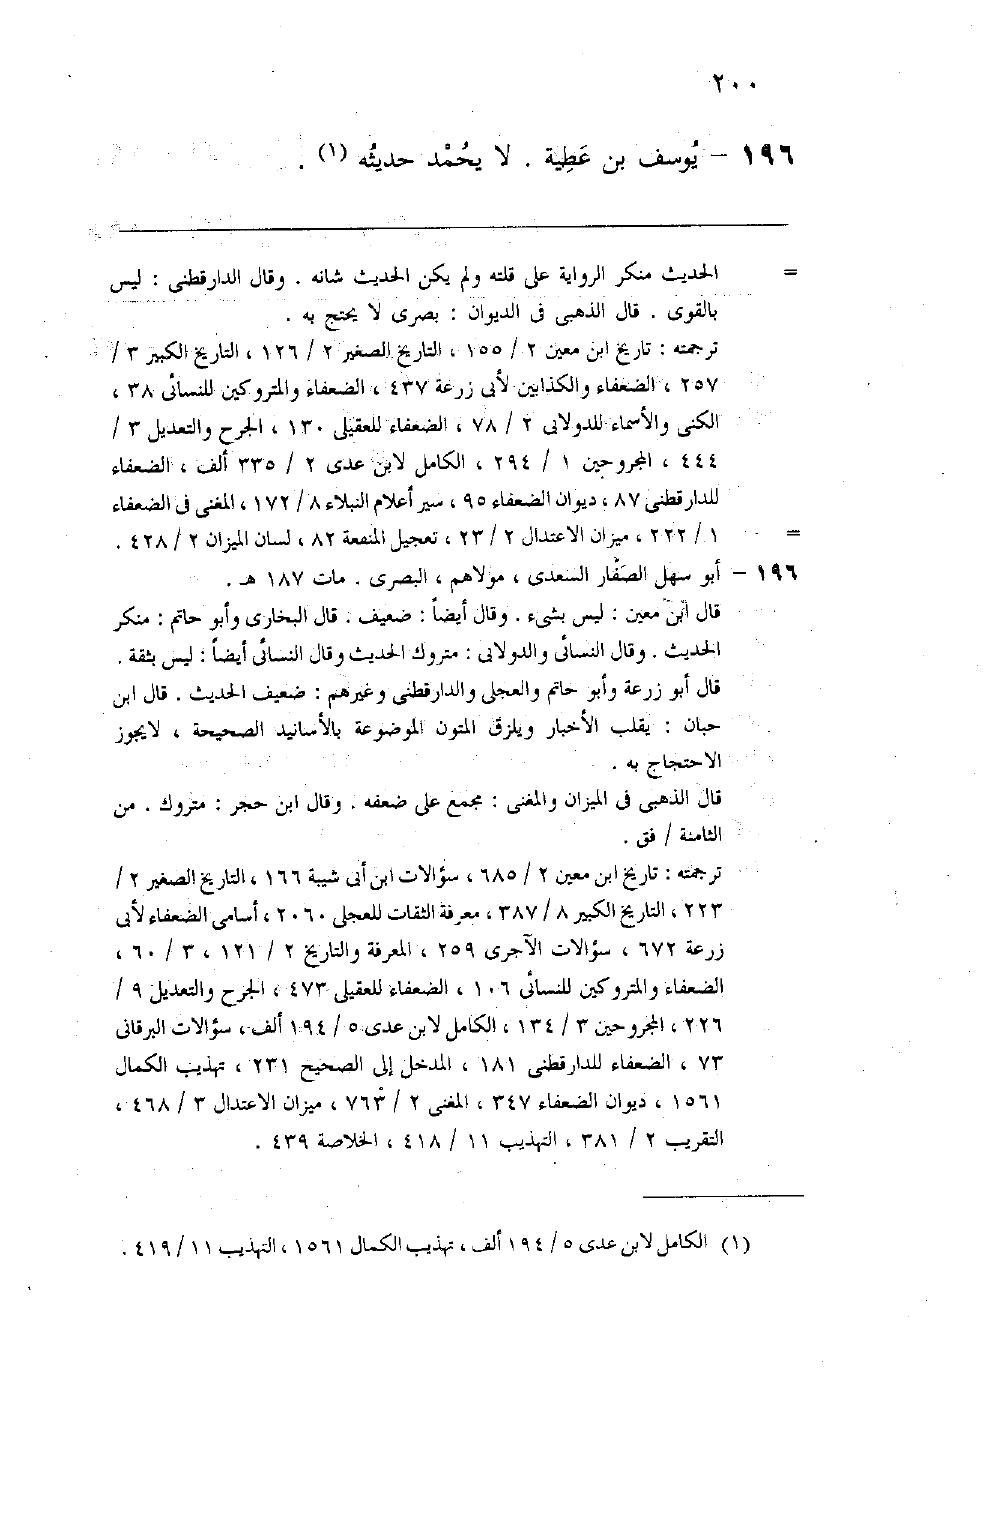 ٢٠٠
١٩٦ - يُوسف بن عَطِية . لا يحُمْد حديثُه (١) .
= الحديث منكر الرواية على قلته ولم يكن الحديث شانه . وقال الدارقطنى : ليس
بالقوى . قال الذهبى فى الديوان : بصرى لا يحتج به .
ترجمته : تاريخ ابن معين ٢ / ١٥٥ ، التاريخ الصغير ٢ / ١٢٦ ، التاريخ الكبير ٣ /
٢٥٧ ، الضعفاء والكذابين لأبى زرعة ٤٣٧ ، الضعفاء والمتروكين للنسائى ٣٨ ،
الكنى والأسماء للدولابى ٢ / ٧٨ ، الضعفاء للعقيلى ١٣٠ ، الجرح والتعديل ٣ /
٤٤٤ ، المجروحين ١ / ٢٩٤ ، الكامل لابن عدى ٢ / ٣٣٥ ألف ، الضعفاء
للدارقطنى ٨٧ ، ديوان الضعفاء ٩٥ ، سير أعلام النبلاء ٨ / ١٧٢ ، المغنى فى الضعفاء
= ١ / ٢٢٢ ، ميزان الاعتدال ٢ / ٢٣ ، تعجيل المنفعة ٨٢ ، لسان الميزان ٢ / ٤٢٨ .
١٩٦ - أبو سهل الصَفّار السعدى ، مولاهم ، البصرى . مات ١٨٧ هـ .
قال ابن معين : ليس بشىء . وقال أيضاً : ضعيف . قال البخارى وأبو حاتم : منكر
الحديث . وقال النسائى والدولابى : متروك الحديث وقال النسائى أيضاً : ليس بثقة .
قال أبو زرعة وأبو حاتم والعجلى والدارقطنى وغيرهم : ضعيف الحديث . قال ابن
حبان : يقلب الأخبار ويلزق المتون الموضوعة بالأسانيد الصحيحة ، لايجوز
الاحتجاج به .
قال الذهبى فى الميزان والمغنى : مجمع على ضعفه . وقال ابن حجر : متروك . من
الثامنة / فق .
ترجمته : تاريخ ابن معين ٢ / ٦٨٥ ، سؤالات ابن أبى شيبة ١٦٦ ، التاريخ الصغير ٢ /
٢٢٣ ، التاريخ الكبير ٨ / ٣٨٧ ، معرفة الثقات للعجلى ٢٠٦٠ ، أسامى الضعفاء لأبى
زرعة ٦٧٢ ، سؤالات الآجرى ٢٥٩ ، المعرفة والتاريخ ٢ / ١٢١ ، ٣ / ٦٠ ،
الضعفاء والمتروكين للنسائى ١٠٦ ، الضعفاء للعقيلى ٤٧٣ ، الجرح والتعديل ٩ /
٢٢٦ ، المجروحين ٣ / ١٣٤ ، الكامل لابن عدى ٥ / ١٩٤ ألف ، سؤالات البرقانى
٧٣ ، الضعفاء للدارقطنى ١٨١ ، المدخل إلى الصحيح ٢٣١ ، تهذيب الكمال
١٥٦١ ، ديوان الضعفاء ٣٤٧ ، المغنى ٢ / ٧٦٣ ، ميزان الاعتدال ٣ / ٤٦٨ ،
التقريب ٢ / ٣٨١ ، التهذيب ١١ / ٤١٨ ، الخلاصة ٤٣٩ .
(١) الكامل لابن عدى ٥ / ١٩٤ ألف ، تهذيب الكمال ١٥٦١ ، التهذيب ١١ / ٤١٩ .